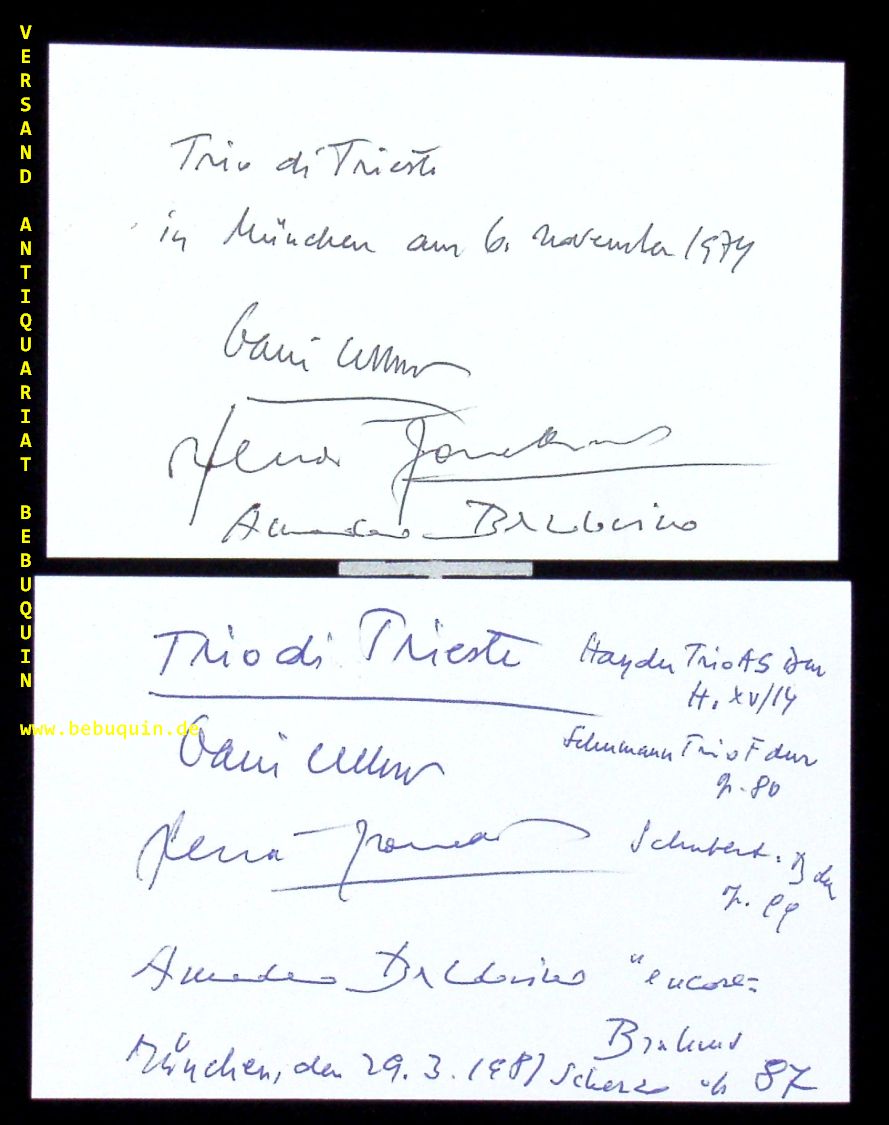 VERSAND ANTIQUARIAT BEBUQUIN
www.bebuquin.de
Trio di Trieste
in München am 6. November 1974
Dario
Renato
Amedeo Baldovino
Trio di Trieste
Dario
Renato
Amedeo Baldovino
München, den 29. 3. 1981
Haydn Trio AS dur
H. XV/14
Schumann Trio F dur
op. 80
Schubert. B dur
op. 99
"encore=
Brahms
Scherzo op 87